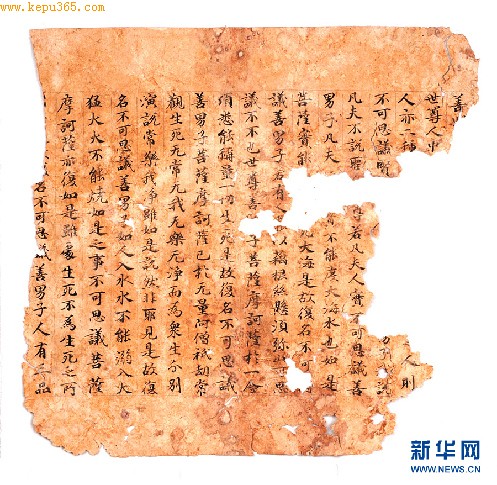 www.kepu365.com
善
世尊人中
人亦二種 人則
不可思議 男子 說
凡夫不說 尊若凡夫人實不可思議善
男子凡夫 不能度大海水也如是
菩薩實能 大海是故復名不可
議善男子若有 以藕根絲懸須弥 思
議不不也世尊善 子菩薩摩訶薩於一念
頃悉能稱量一切生死是故復名不可思議
善男子菩薩摩訶薩已於无量阿僧祇劫常
觀生死无常无我无樂无淨而為眾生分別
演說常樂我淨雖如是說然非耶見是故復
名不可思議善男子如人入水水不能溺入大
猛火火不能燒如是之事不可思議菩薩
摩訶薩亦復如是雖處生死不為生死之所
名不可思議善男子人有三品
新华网
WWW.NEWS.CN